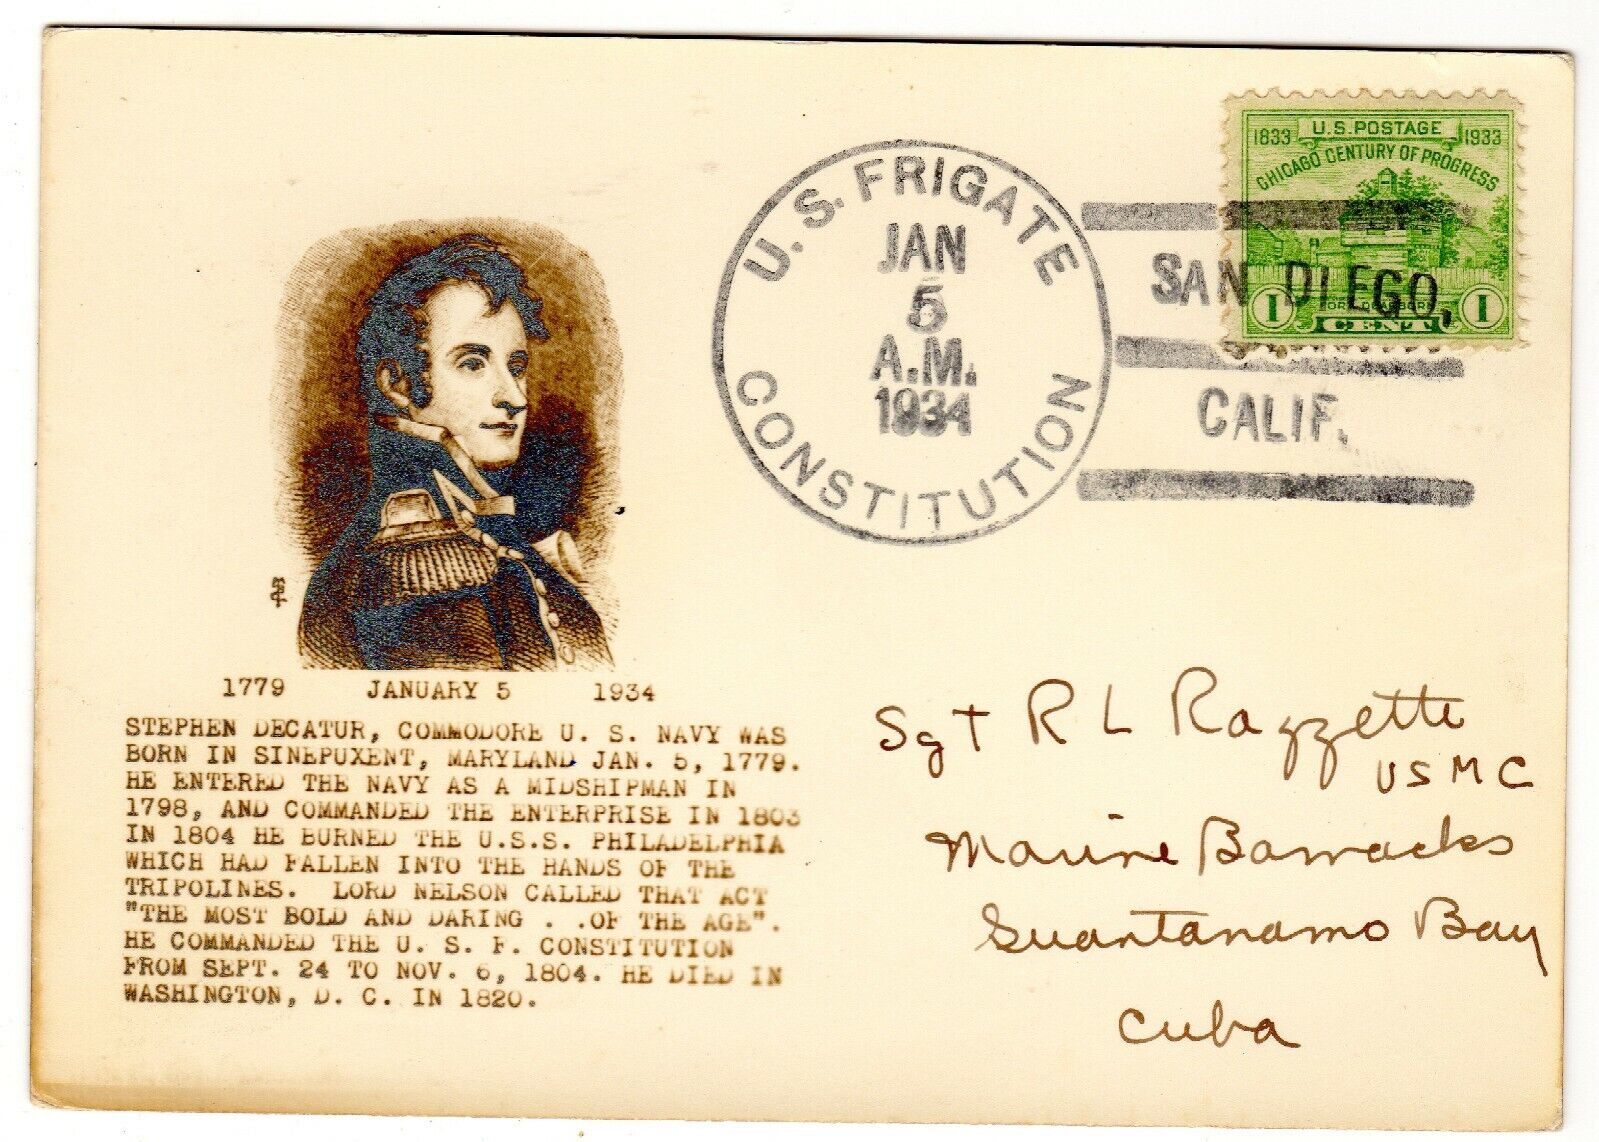 1833 U.S. POSTAGE 1933
CHICAGO CENTURY OF PROGRESS
FORT DEARBORN
1 CENT 1
U.S. FRIGATE
JAN
5
A.M.
1934
CONSTITUTION
SAN DIEGO,
CALIF.
1779 JANUARY 5 1934
STEPHEN DECATUR, COMMODORE U. S. NAVY WAS
BORN IN SINEPUXENT, MARYLAND JAN. 5, 1779.
HE ENTERED THE NAVY AS A MIDSHIPMAN IN
1798, AND COMMANDED THE ENTERPRISE IN 1803
IN 1804 HE BURNED THE U.S.S. PHILADELPHIA
WHICH HAD FALLEN INTO THE HANDS OF THE
TRIPOLINES. LORD NELSON CALLED THAT ACT
"THE MOST BOLD AND DARING . .OF THE AGE".
HE COMMANDED THE U. S. F. CONSTITUTION
FROM SEPT. 24 TO NOV. 6, 1804. HE DIED IN
WASHINGTON, D. C. IN 1820.
Sgt R L Razzette
USMC
Marine Barracks
Guantanamo Bay
Cuba